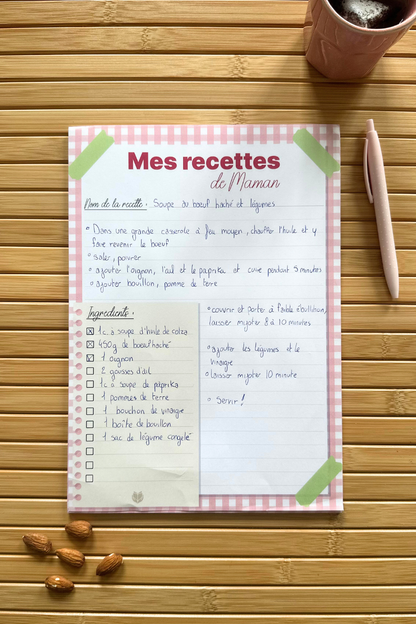 Mes recettes
de Maman
Nom de la recette : Soupe au boeuf haché et légumes
• Dans une grande casserole à feu moyen, chauffer l'huile et y
faire revenir le boeuf
• saler, poivrer
• ajouter l'oignon, l'ail et le paprika et cuire pendant 5 minutes
• ajouter bouillon, pomme de terre
Ingrédients :
1 c. à soupe d'huile de colza
450g de boeuf haché
1 oignon
2 gousses d'ail
1c à soupe de paprika
1 pommes de terre
1 bouchon de vinaigre
1 boîte de bouillon
1 sac de légume congelé
• couvrir et porter à faible ébullition,
laisser mijoter 8 à 10 minutes
• ajouter les légumes et le
vinaigre
• laisser mijoter 10 minute
• Servir !